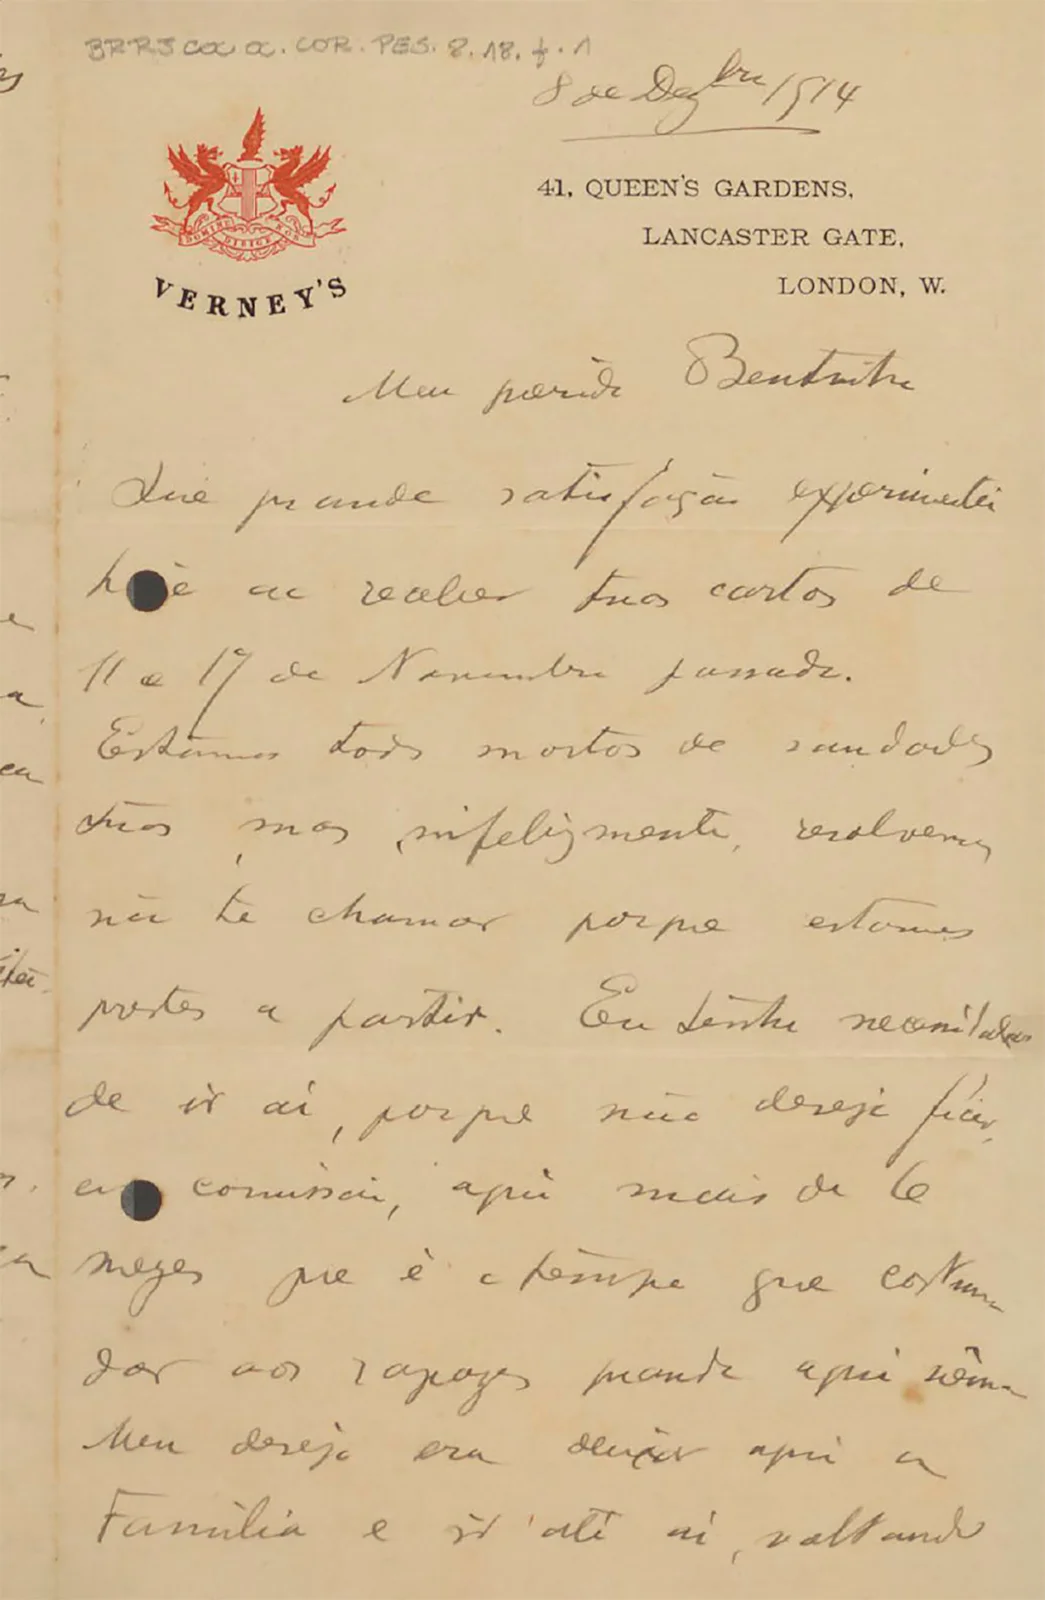 BR RJ COC OC. COR. PES. 2. 18. f. 1
8 de Dezbro 1914
DOMINE DIRIGE NOS
VERNEY'S
41, QUEEN'S GARDENS,
LANCASTER GATE,
LONDON, W.
Meu querido Bentinho
Que grande satisfação experimentei
hoje ao receber tuas cartas de
11 e 17 de Novembro passado.
Estamos todos mortos de saudades
tuas, mas, infelizmente, resolvemos
não te chamar porque estamos
prestes a partir. Eu tenho necessidade
de ir aí, porque não desejo ficar,
em comissão, aqui mais de 6
mezes que é o tempo que costuma
dar aos rapazes quando aqui vêm.
Meu desejo era deixar aqui a
Família e ir até aí, voltando